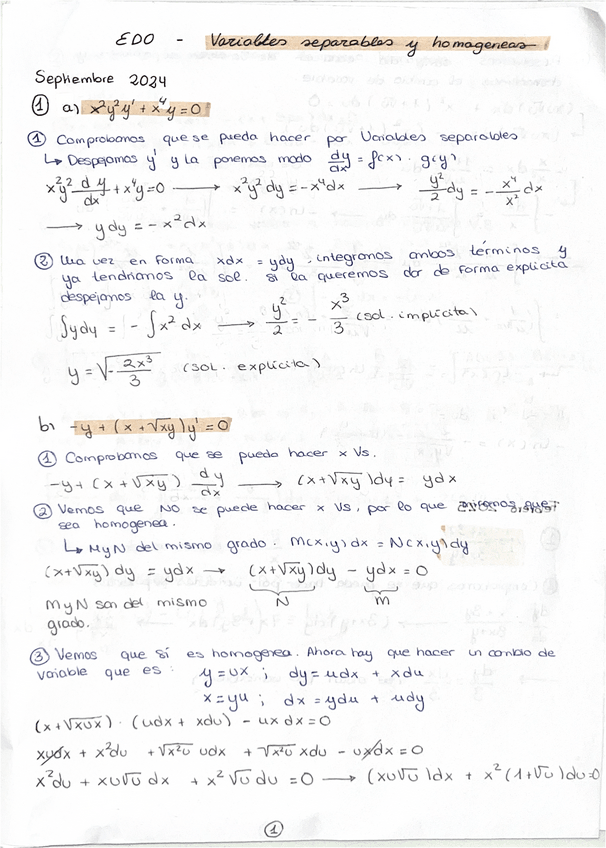 EDO - Variables separables y homogeneas
Septiembre 2024
① a) x²y²y' + x⁴y = 0
① Comprobamos que se pueda hacer por Variables separables
↳ Despejamos y' y la ponemos modo dy/dx = f(x) · g(y)
x²y² dy/dx + x⁴y = 0 → x²y² dy = -x⁴dx → y²/2 dy = - x⁴/x² dx
→ y dy = - x² dx
② Una vez en forma xdx = ydy, integramos ambos términos y
ya tendríamos la sol. si la queremos dar de forma explicita
despejamos la y.
∫ydy = - ∫x² dx → y²/2 = - x³/3 (sol. implícita)
y = √(- 2x³/3) (sol. explícita)
b) -y + (x + √xy) y' = 0
① Comprobamos que se puedo hacer x Vs.
-y + (x + √xy) dy/dx → (x + √xy) dy = ydx
② Vemos que NO se puede hacer x Vs, por lo que miramos que
sea homogenea.
↳ M y N del mismo grado. M(x,y) dx = N(x,y) dy
(x+√xy) dy = ydx → (x+√xy) dy - ydx = 0
N M
M y N son del mismo
grado.
③ Vemos que sí es homogenea. Ahora hay que hacer un cambio de
variable que es: y = ux ; dy = udx + xdu
x = yu ; dx = ydu + udy
(x + √xux) · (udx + xdu) - ux dx = 0
xudx + x²du + √x²u udx + √x²u xdu - uxdx = 0
x²du + xu√u dx + x²√u du = 0 → (xu√u) dx + x² (1+√u) du = 0
①